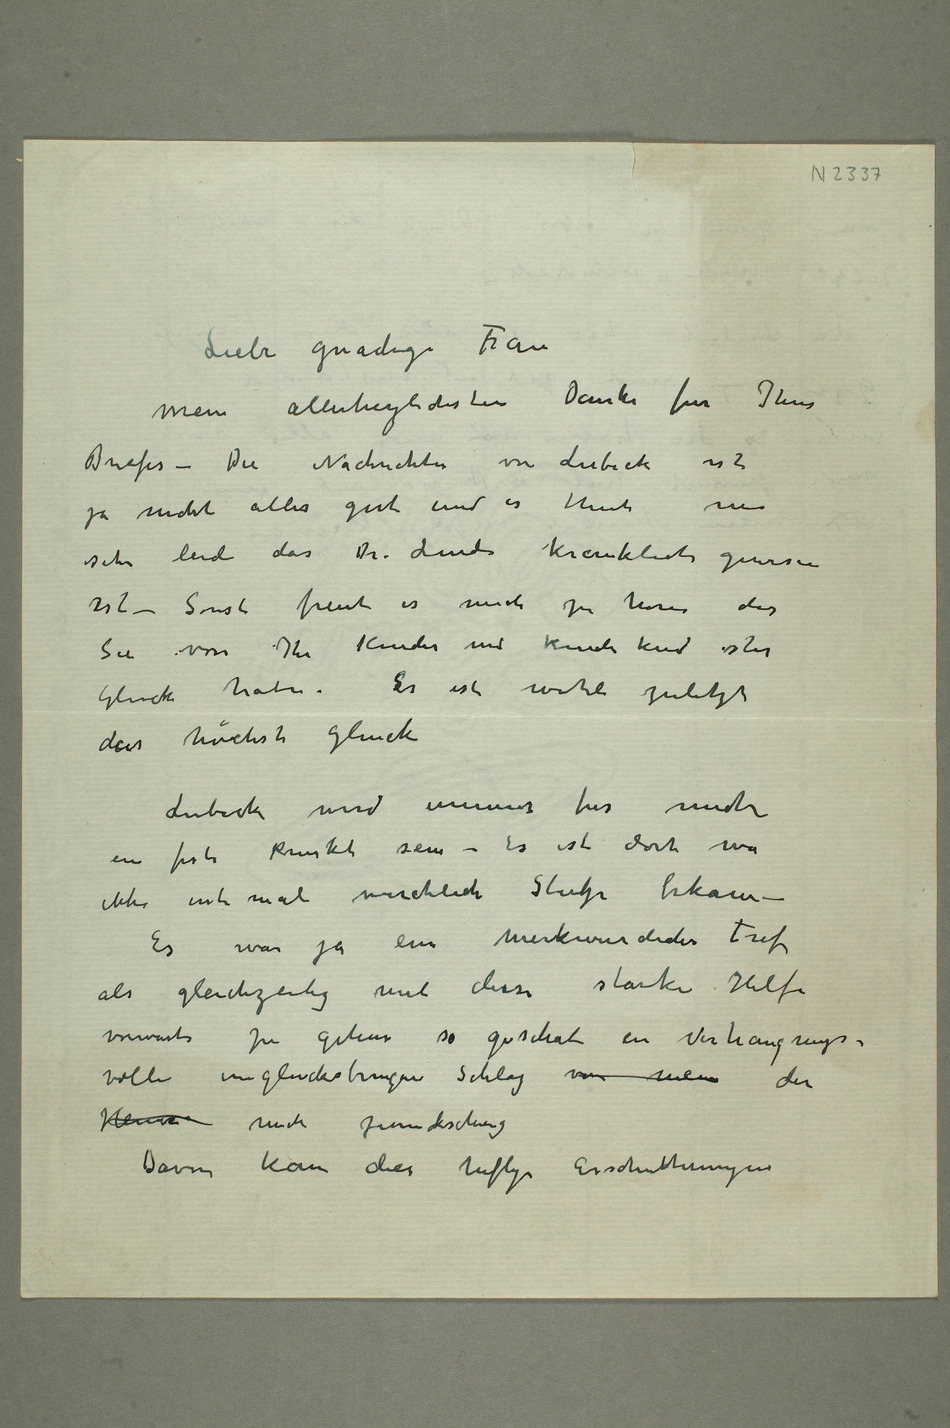 N 2337
Liebe gnädige Frau
Mein allerherzlichsten Danke für Ihres
Briefes – Die Nachrichten von Lübeck ist
ja nicht alles gut und es thut mir
sehr leid das Dr. Linde kranklich gewesen
ist – Sonst freut es mich zu horen das
Sie von Ihr Kinder und Kindeskind
Gluck haben. Es ist wohl zuletzt
das höchste Gluck
Lubeck wird immer fur mich
ein feste Punkt sein – Es ist dort wo
ich mal wircklich Stutze bekam –
Es war ja ein merkwurdiches Tref
als gleichzeitig mit diese starke Hilfe
vorwarts zu gehen so geschah ein Verhangnugs-
volle unglucksbringen Schlag von mein der
mich zuruckschlug
Davon kam die heftige Erschutterungen